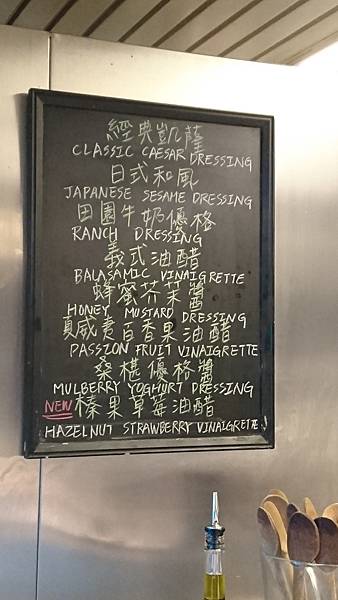 經典凱薩
CLASSIC CAESAR DRESSING
日式和風
JAPANESE SESAME DRESSING
田園牛奶優格
RANCH DRESSING
義式油醋
BALASAMIC VINAIGRETTE
蜂蜜芥茉醬
HONEY MUSTARD DRESSING
真威夷百香果油醋
PASSION FRUIT VINAIGRETTE
桑椹優格醬
MULBERRY YOGHURT DRESSING
NEW 榛果草莓油醋
HAZELNUT STRAWBERRY VINAIGRETTE